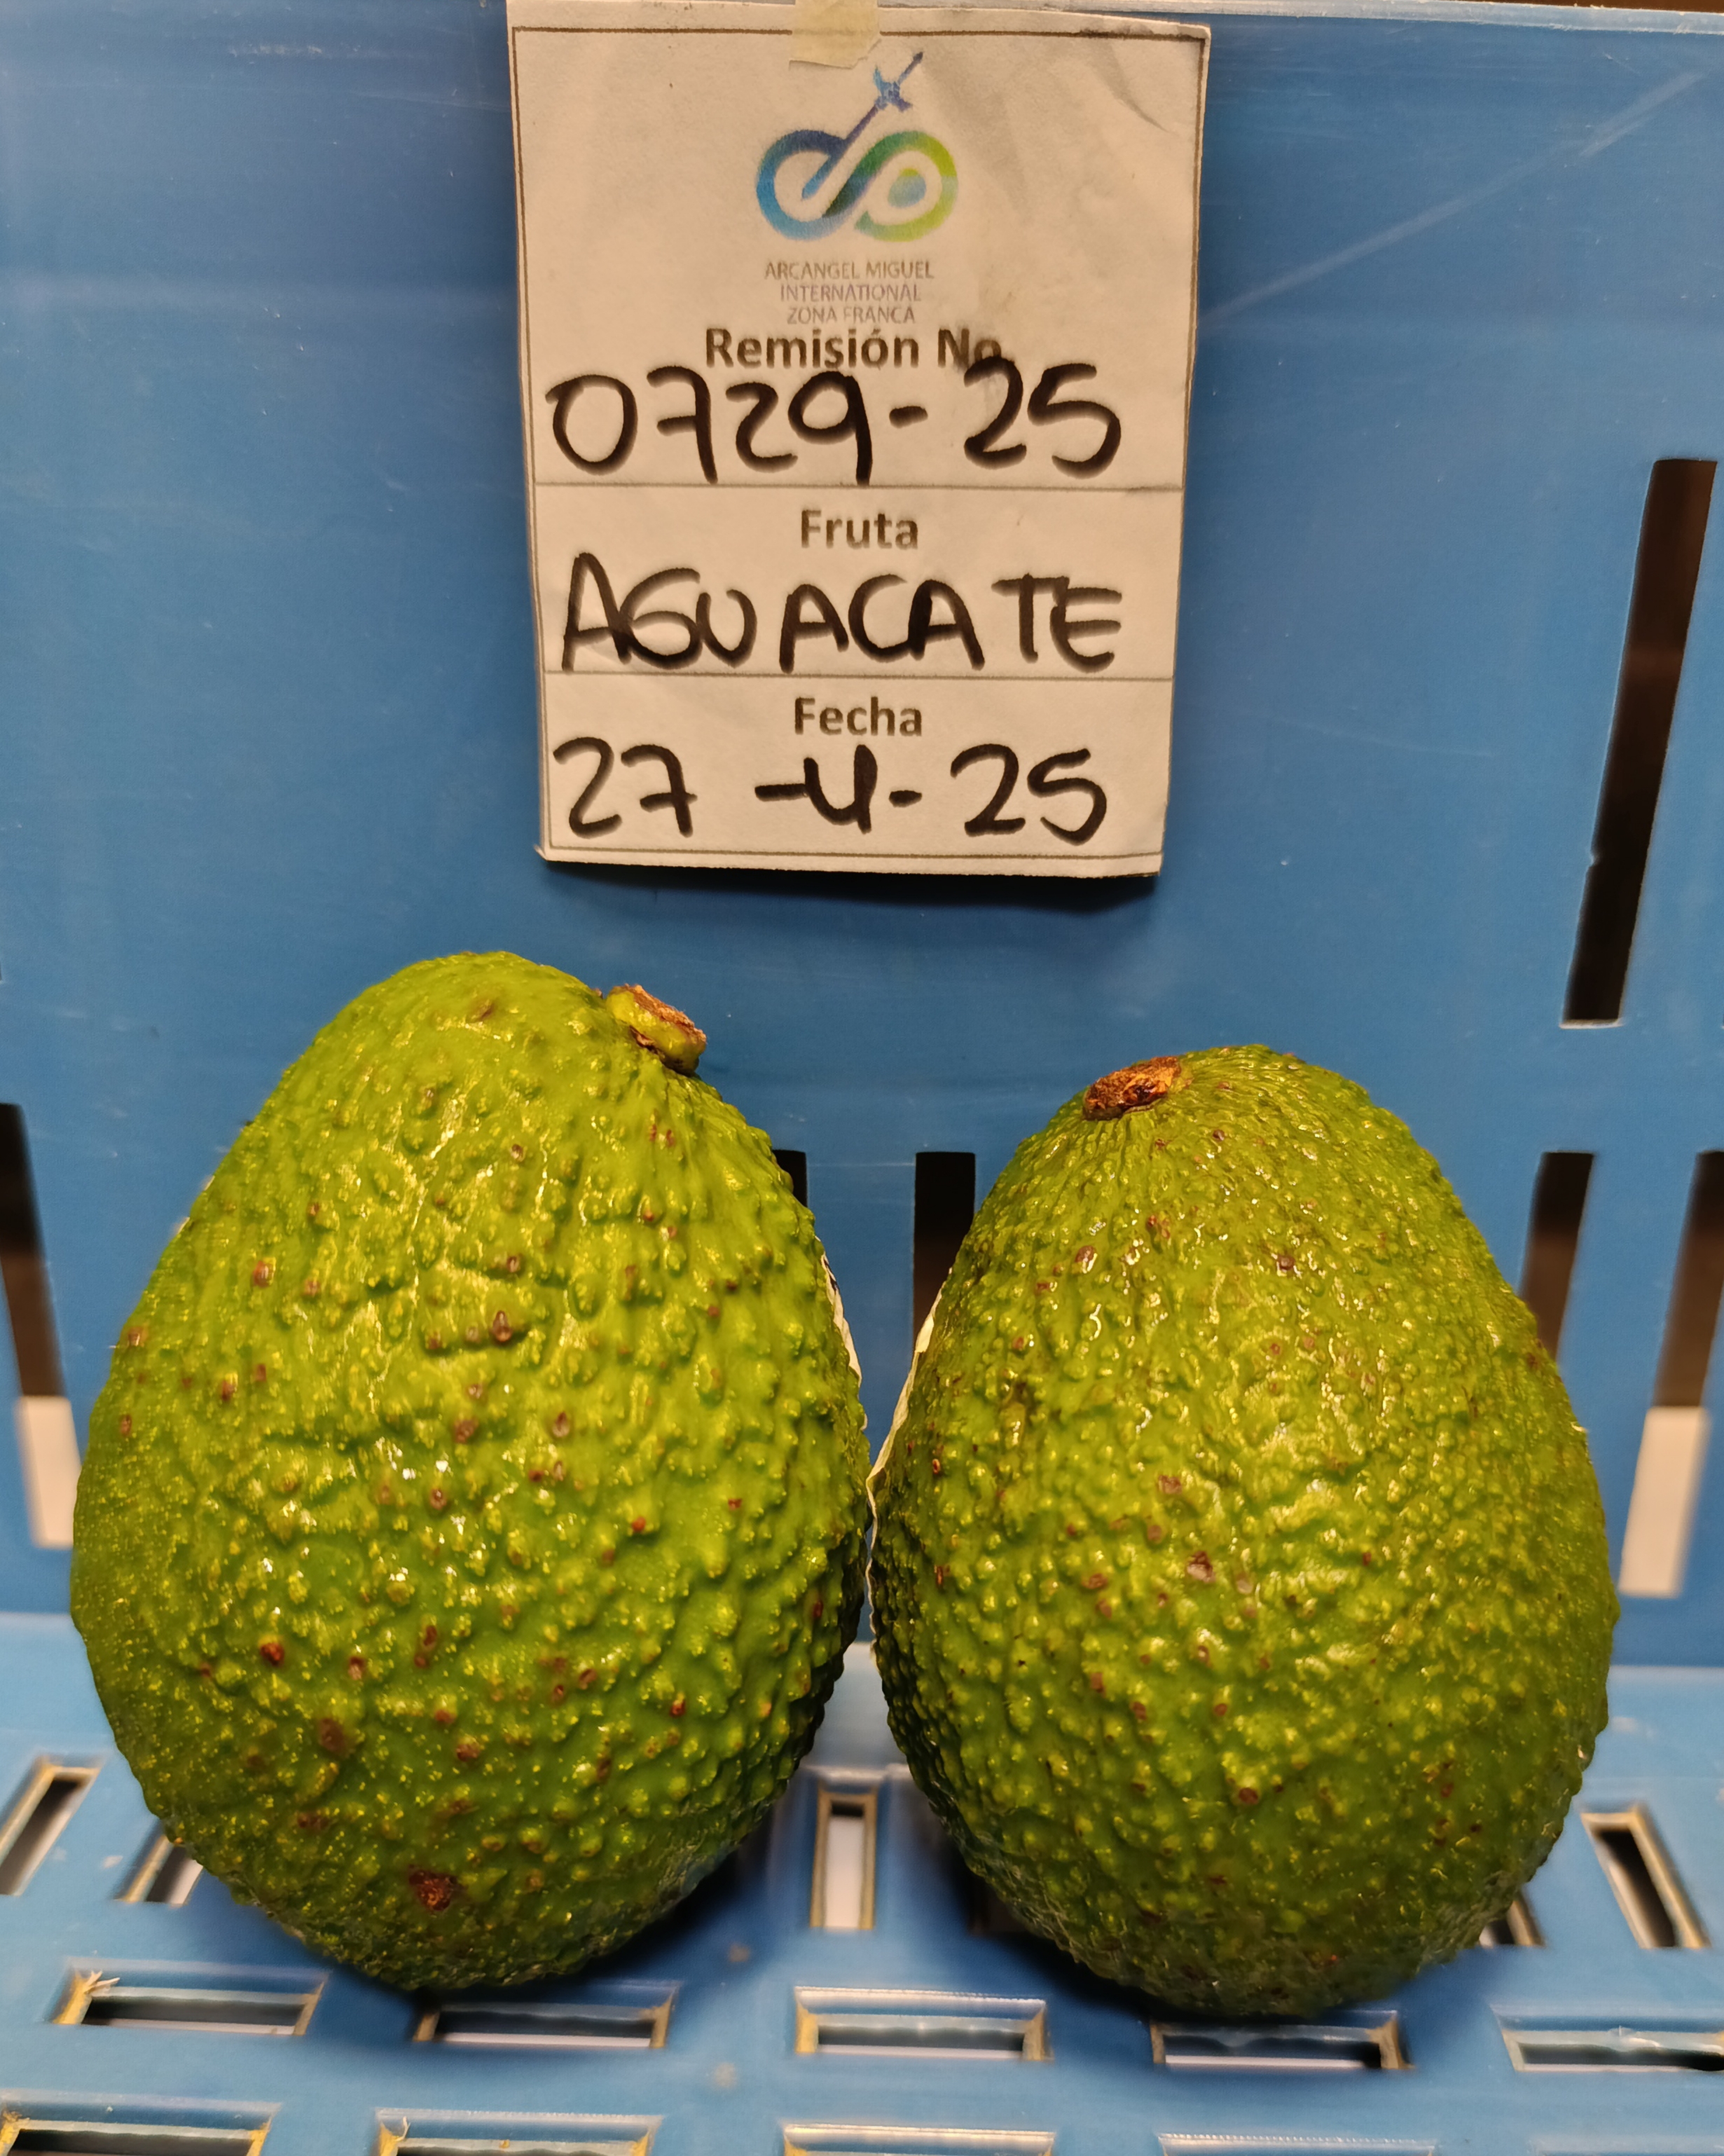 ARCANGEL MIGUEL
INTERNATIONAL
ZONA FRANCA
Remisión No.
0729-25
Fruta
AGUACATE
Fecha
27-4-25